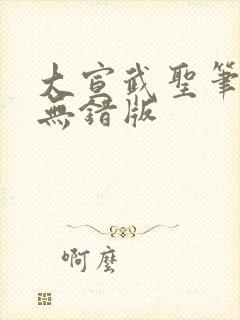 大宣武聖筆
無錯版
啊麼